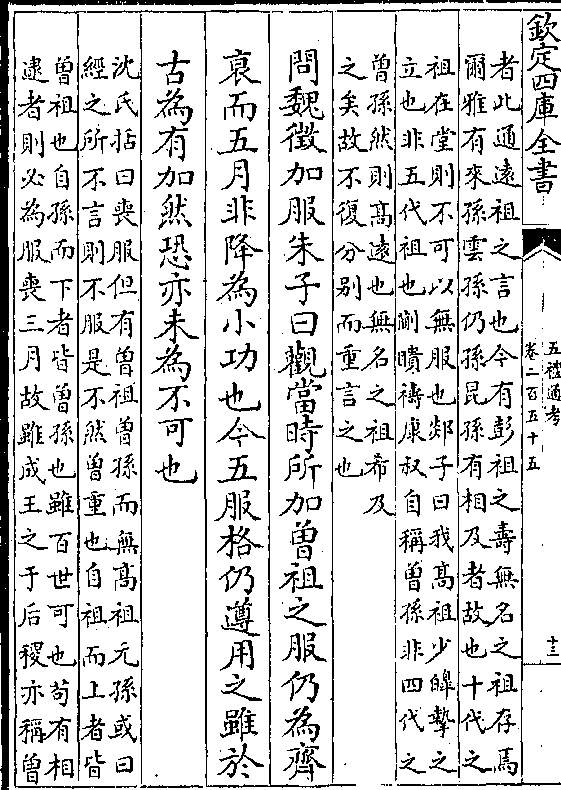 欽定四庫全書
五禮通考
卷二百五十五
十三
者此通遠祖之言也今有彭祖之壽無名之祖存焉
爾雅有來孫雲孫仍孫昆孫有相及者故也十代之
祖在堂則不可以無服也郯子曰我高祖少皞摯之
立也非五代祖也蒯聵禱康叔自稱曽孫非四代之
曽孫然則高遠也無名之祖希及
之矣故不復分别而重言之也
問魏徵加服朱子曰觀當時所加曽祖之服仍為齊
衰而五月非降為小功也今五服格仍遵用之雖於
古為有加然恐亦未為不可也
沈氏括曰喪服但有曽祖曽孫而無髙祖元孫或曰
經之所不言則不服是不然曽重也自祖而上者皆
曽祖也自孫而下者皆曽孫也雖百世可也苟有相
逮者則必為服喪三月故雖成王之于后稷亦稱曽